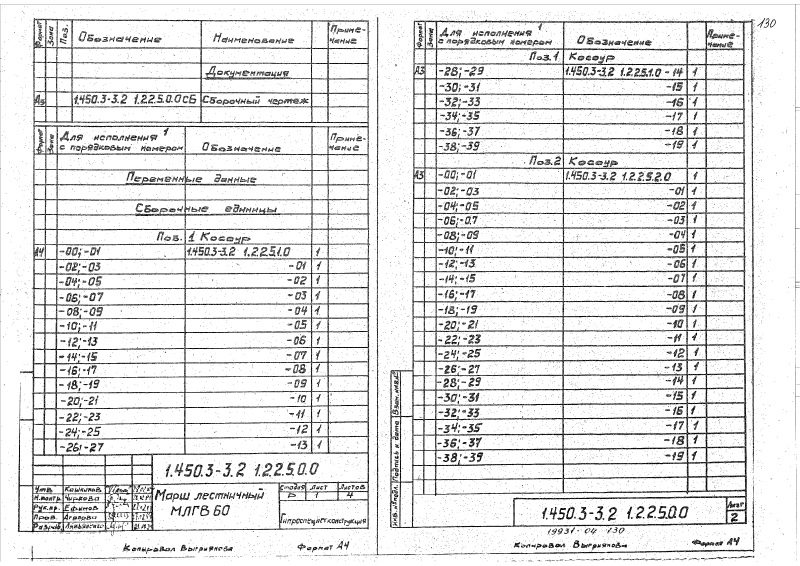 Формат Зона Поз. Обозначение Наименование Примечание
Документация
А3 1.450.3-3.2 1.2.2.5.0.0СБ Сборочный чертеж
Формат Зона Для исполнения 1 с порядковым номером Обозначение Примечание
Переменные данные
Сборочные единицы
Поз. 1 Косоур
А4 -00; -01 1.450.3-3.2 1.2.2.5.1.0 1
-02; -03 -01 1
-04; -05 -02 1
-06; -07 -03 1
-08; -09 -04 1
-10; -11 -05 1
-12; -13 -06 1
-14; -15 -07 1
-16; -17 -08 1
-18; -19 -09 1
-20; -21 -10 1
-22; -23 -11 1
-24; -25 -12 1
-26; -27 -13 1
1.450.3-3.2 1.2.2.5.0.0
Утв. Кошкинов
Н.контр. Чиркова
Рук.пр. Ефимов
Пров. Агапова
Разраб.
Марш лестничный
МЛГВ 60
Стадия Лист Листов
Р 1 4
Гипроспецлегконструкция
Копировал Выгриянова Формат А4
130
Формат Зона Для исполнения 1 с порядковым номером Обозначение Примечание
Поз. 1 Косоур
А3 -28; -29 1.450.3-3.2 1.2.2.5.1.0 -14 1
-30; -31 -15 1
-32; -33 -16 1
-34; -35 -17 1
-36; -37 -18 1
-38; -39 -19 1
Поз. 2 Косоур
А3 -00; -01 1.450.3-3.2 1.2.2.5.2.0 1
-02; -03 -01 1
-04; -05 -02 1
-06; -07 -03 1
-08; -09 -04 1
-10; -11 -05 1
-12; -13 -06 1
-14; -15 -07 1
-16; -17 -08 1
-18; -19 -09 1
-20; -21 -10 1
-22; -23 -11 1
-24; -25 -12 1
-26; -27 -13 1
-28; -29 -14 1
-30; -31 -15 1
-32; -33 -16 1
-34; -35 -17 1
-36; -37 -18 1
-38; -39 -19 1
Инв.№подл. Подпись и дата Взам.инв.№
1.450.3-3.2 1.2.2.5.0.0
Лист
2
19931-04 130
Копировал Выгриянова Формат А4